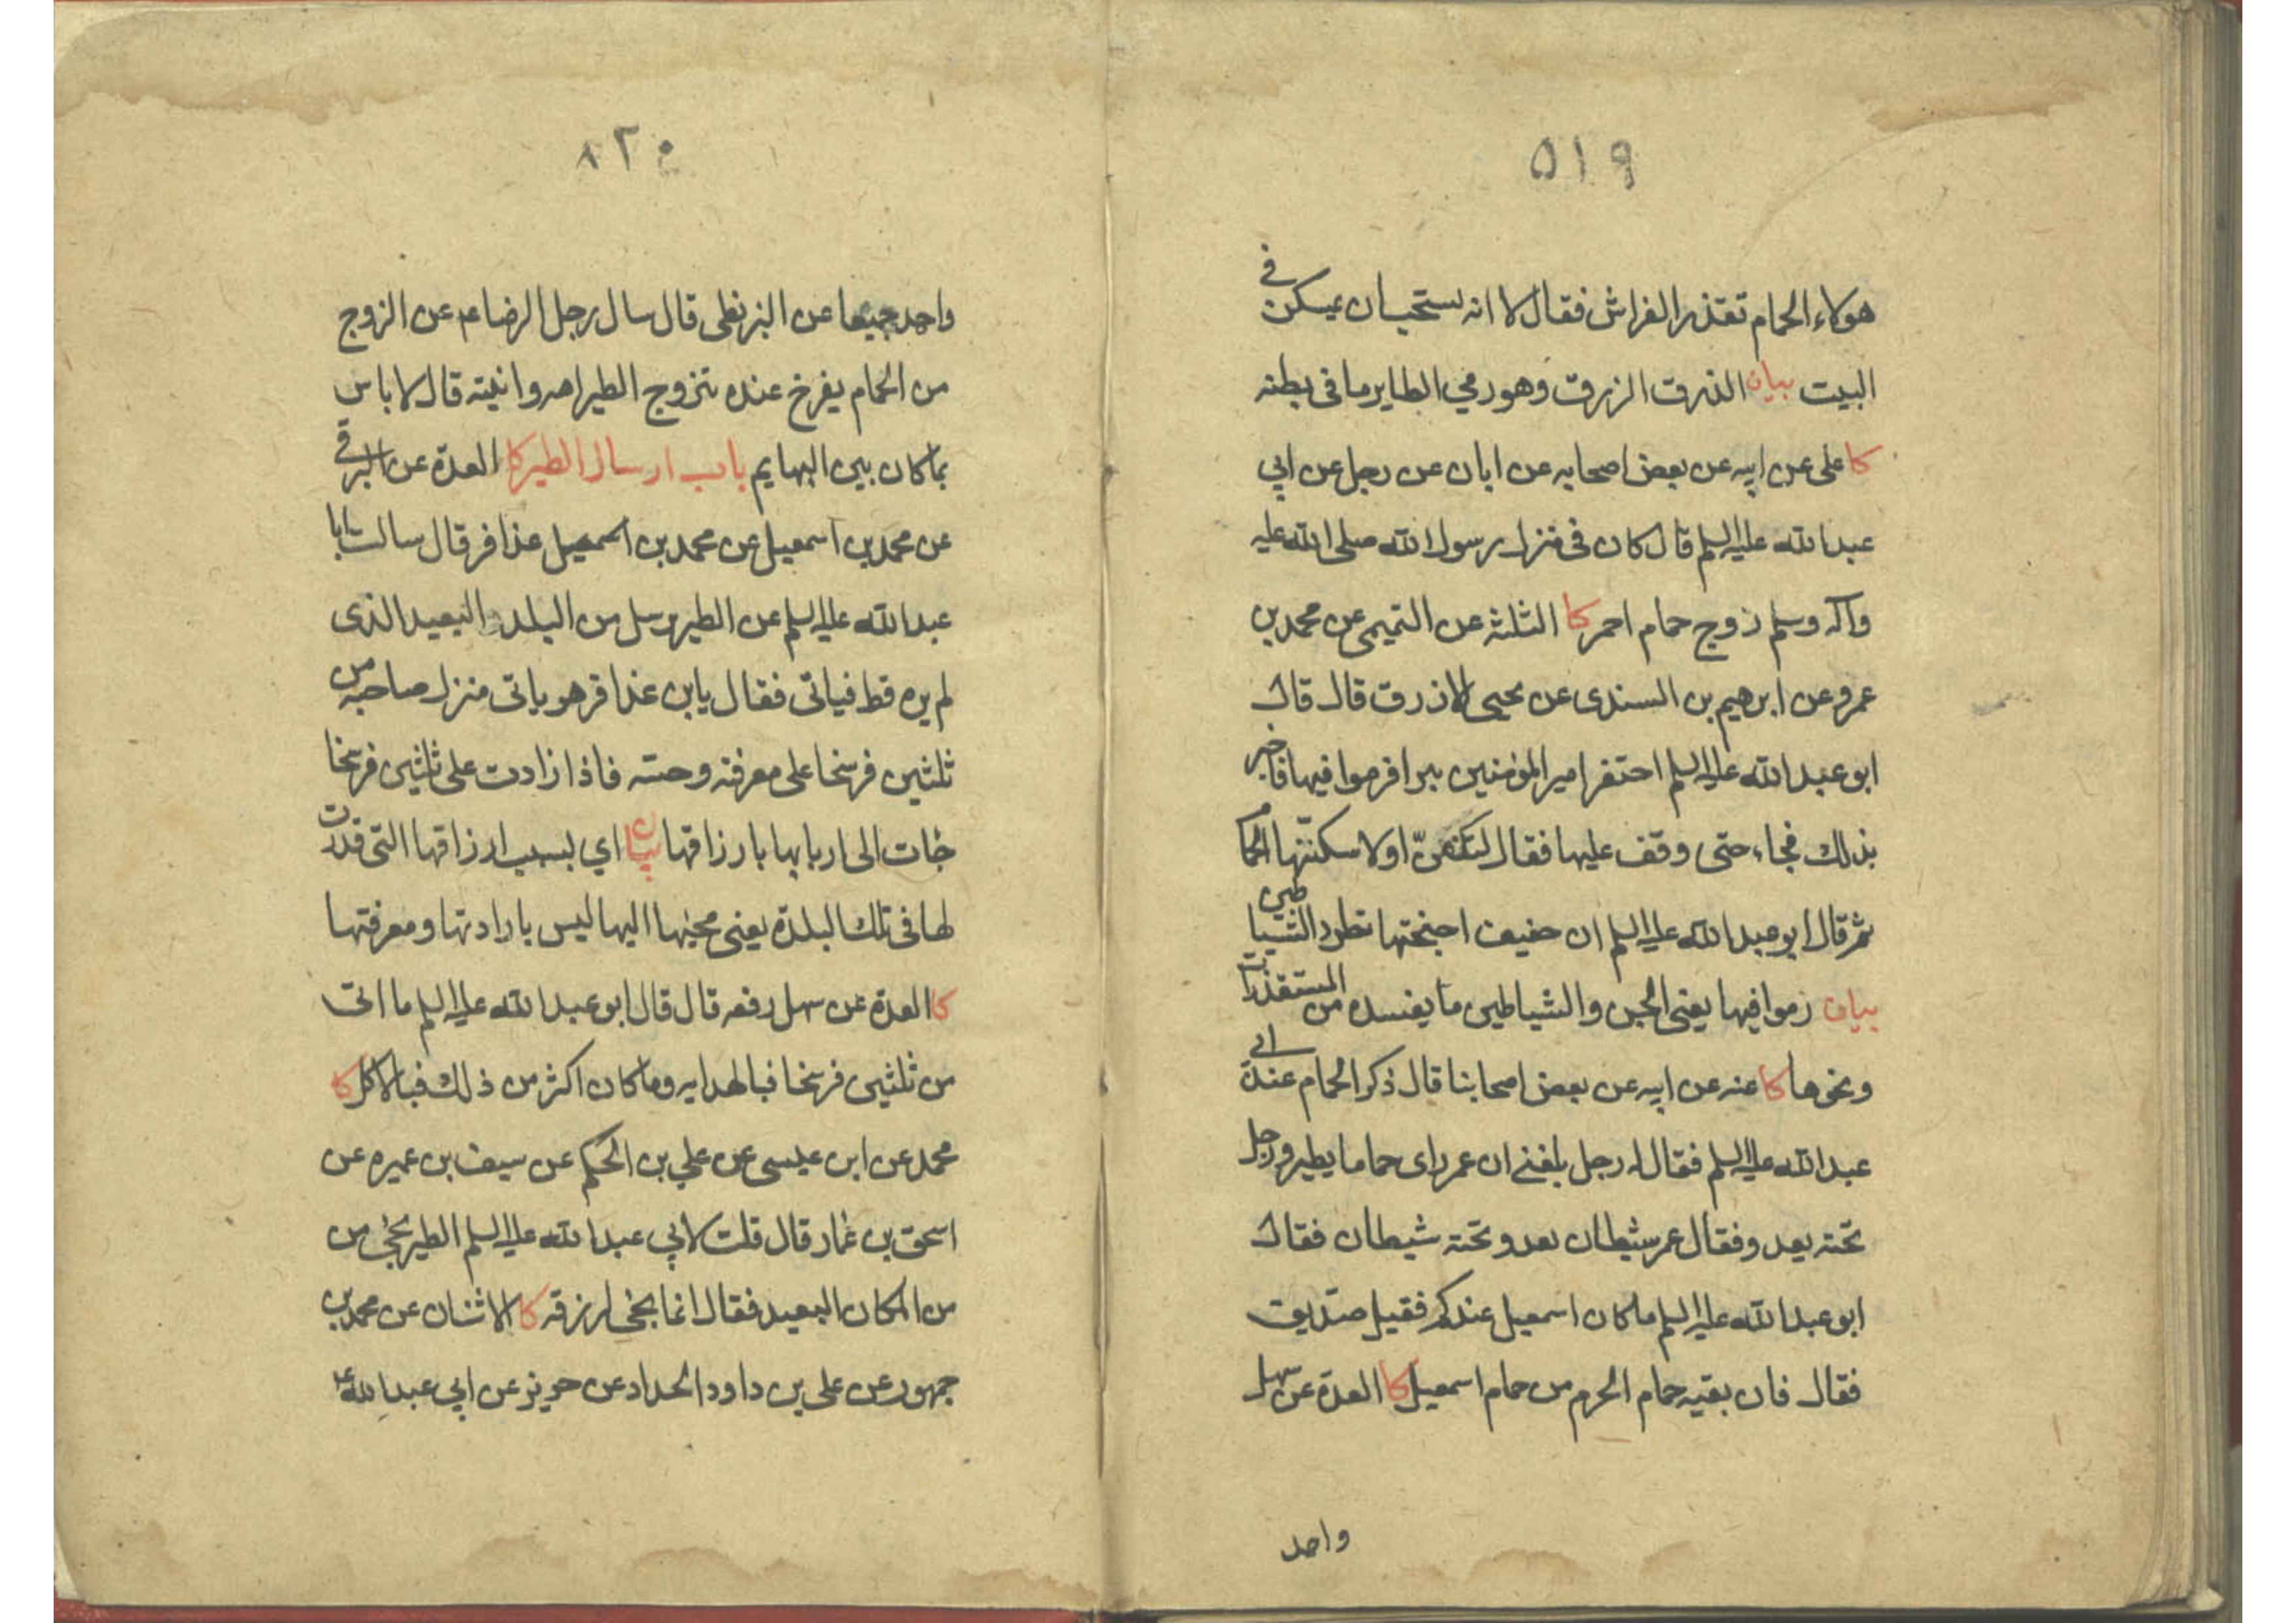 ٥١٩
هولاء الحمام تقذر الفراش فقال لا انه يستحب ان يسكن في
البيت بيان الذرق الزرق وهو رمي الطاير ما فى بطنه
كا على عن ابيه عن بعض اصحابه عن ابان عن رجل عن ابي
عبد الله عليه السلم قال كان فى منزل رسول الله صلى الله عليه
واله وسلم زوج حمام احمر كا الثلثة عن التميمى عن محمد بن
عمرو عن ابرهيم بن السندى عن يحيى الازرق قال قال
ابو عبد الله عليه السلم احتفر امير المؤمنين بيرا فرموا فيها فاخبر
بذلك فجاء حتى وقف عليها فقال لتكفنّ او لاسكننّها الحمام
ثم قال ابو عبد الله عليه السلم ان حفيف اجنحتها تطرد الشياطين
بيان رموا فيها يعنى الجن والشياطين ما يفسده من المستقذرات
ونحوها كا عنه عن ابيه عن بعض اصحابنا قال ذكر الحمام عند ابي
عبد الله عليه السلم فقال له رجل بلغنے ان عمر راى حماما يطير ورجل
تحته يعدو فقال عمر شيطان يعدو تحته شيطان فقال
ابو عبد الله عليه السلم ما كان اسمعيل عندكم فقيل صدّيق
فقال فان بقيه حمام الحرم من حمام اسمعيل كا العدة عن سهل
واحد
٥٢٠
واحد جميعا عن البزنطى قال سال رجل الرضا عم عن الزوج
من الحمام يفرخ عنده يتزوج الطير امه وابنته قال لا باس
بما كان بين البهايم باب ارسال الطير كا العدة عن البرقي
عن محمد بن اسمعيل عن محمد بن عذافر قال سالت ابا
عبد الله عليه السلم عن الطير يرسل من البلد البعيد الذى
لم يره قط فياتى فقال يابن عذافر هو ياتى منزل صاحبه من
ثلثين فرسخا على معرفته وحسه فاذا زادت على ثلثين فرسخا
جات الى اربابها بارزاقها بيان اي بسبب ارزاقها التى قدرت
لها فى تلك البلدة يعنى مجيئها اليها ليس بارادتها ومعرفتها
كا العدة عن سهل رفعه قال قال ابو عبد الله عليه السلم ما اتى
من ثلثين فرسخا فبالهدايه وما كان اكثر من ذلك فبالاكل كا
محمد عن ابن عيسى عن علي بن الحكم عن سيف بن عميره عن
اسحق بن عمار قال قلت لابي عبد الله عليه السلم الطير يجئ من
من المكان البعيد فقال انما يجئ لرزقه كا الاثنان عن محمد بن
جمهور عن على بن داود الحداد عن حريز عن ابي عبد الله ع